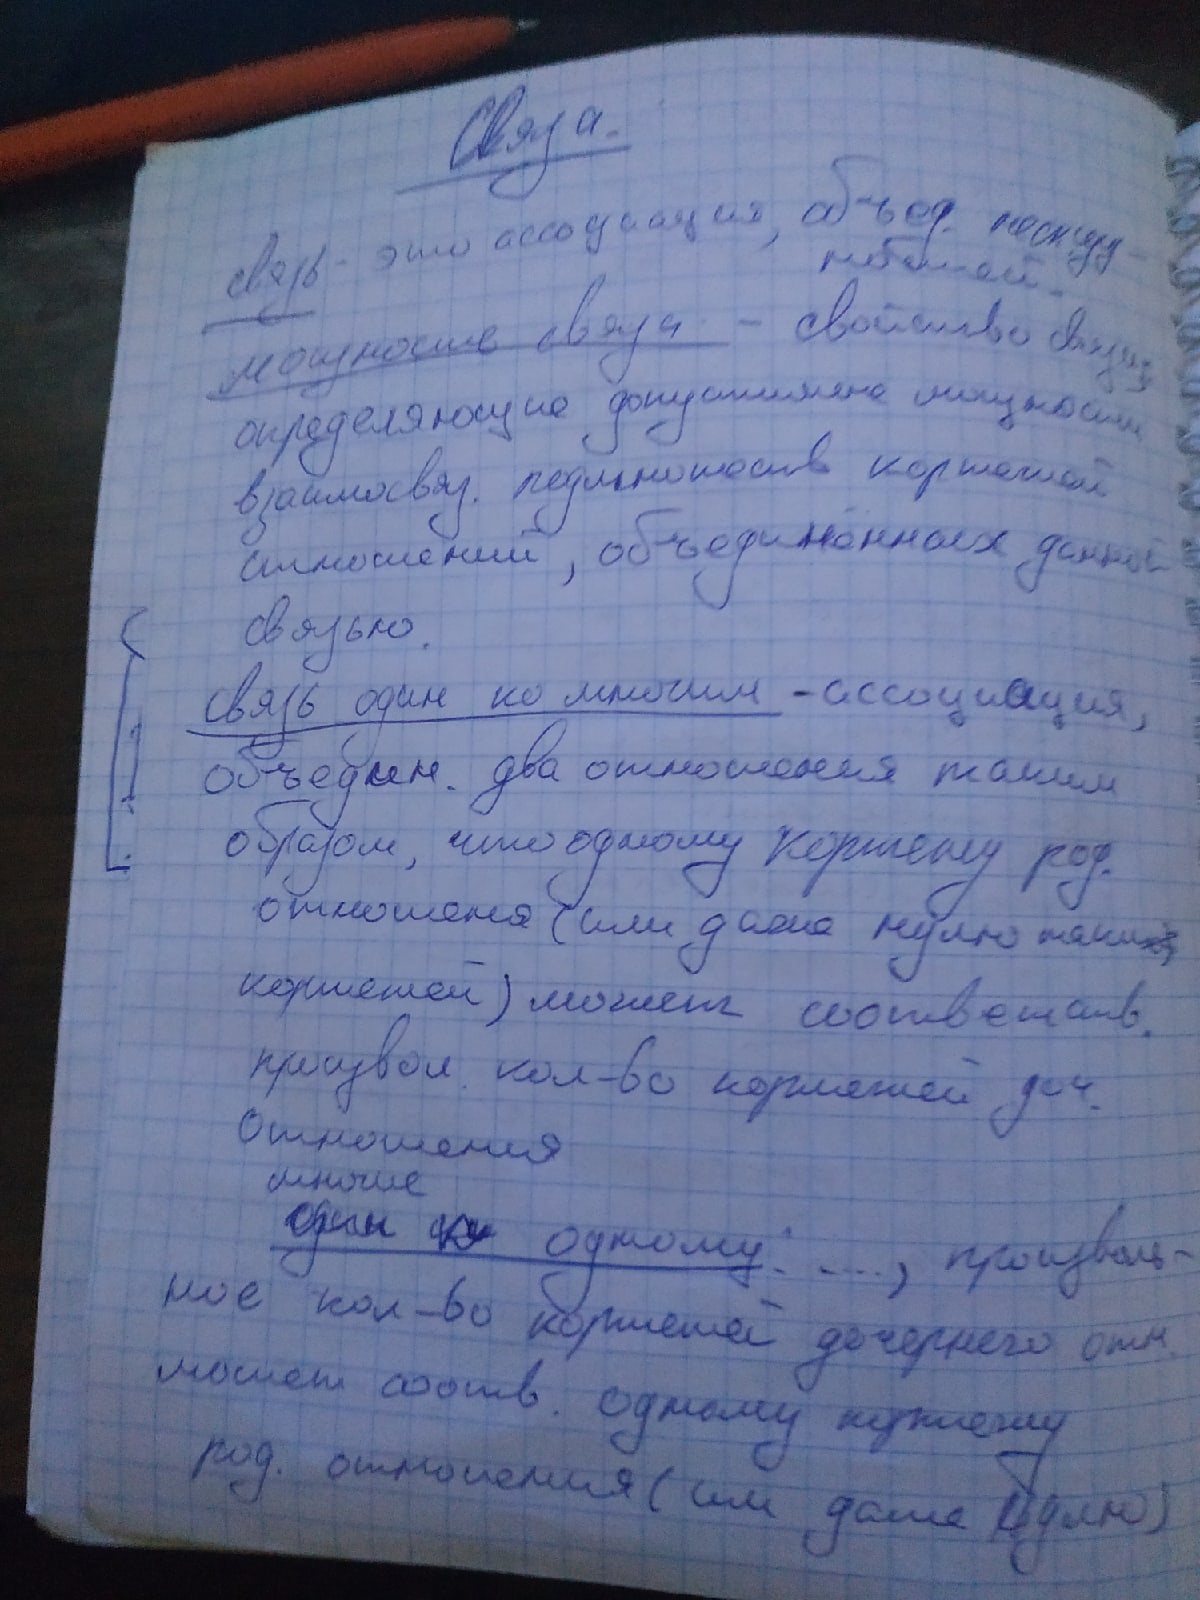 Связи.
связь - это ассоциация, объед. несколь-
мощность связи - свойство связи,
определяющие допустимые мощности
взаимосвяз. подмножеств кортежей
отношений, объединённых данной
связью.
связь один ко многим - ассоциация,
объедин. два отношения таким
образом, что одному кортежу род.
отношения (или даже нулю таких
кортежей) может соответств.
произвол. кол-во кортежей доч.
отношения
многие
один к одному: ...., произволь-
ное кол-во кортежей дочернего отн.
может соотв. одному кортежу
род. отношения (или даже нулю)